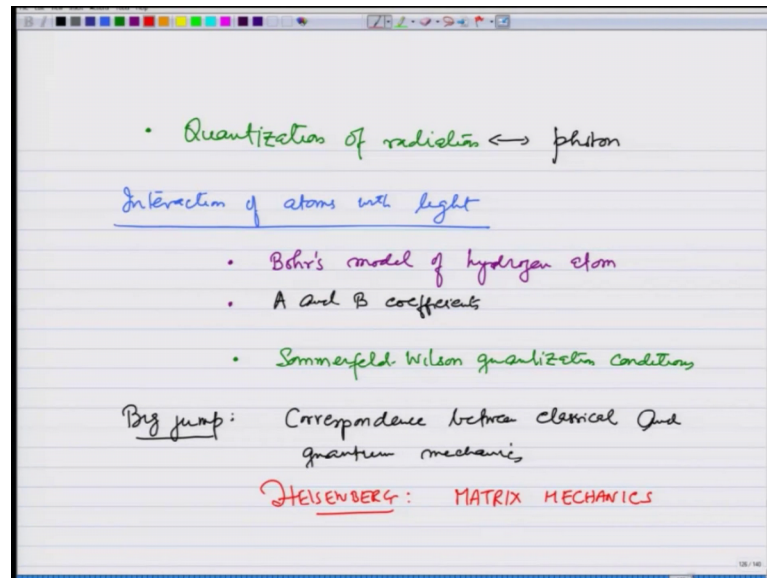 • Quantization of radiation ⟷ photon
Interaction of atoms with light
• Bohr's model of hydrogen atom
• A and B coefficients
• Sommerfeld-Wilson quantization conditions
Big jump: Correspondence between classical and
quantum mechanics
HEISENBERG: MATRIX MECHANICS